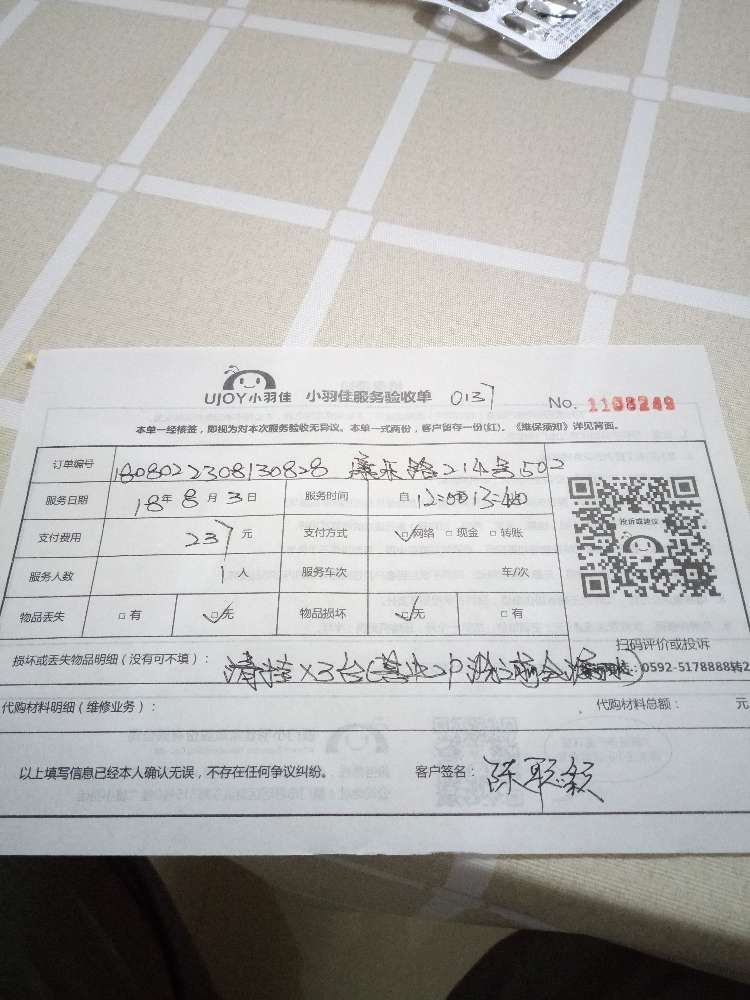 UJOY小羽佳 小羽佳服务验收单 0137 No. 1108249
本单一经核签，即视为对本次服务验收无异议。本单一式两份，客户留存一份(红)。《维保须知》详见背面。
订单编号 1808022308130828 康乐路214号502
服务日期 18年8月3日 服务时间 自
支付费用 237元 支付方式 □网络 □现金 □转账
投诉或建议
服务人数 1人 服务车次 车/次
物品丢失 □有 □无 物品损坏 □无 □有
扫码评价或投诉
损坏或丢失物品明细（没有可不填）： 清挂x3台 0592-5178888转2
代购材料明细（维修业务）： 代购材料总额： 元
以上填写信息已经本人确认无误，不存在任何争议纠纷。 客户签名： 陈聪毅